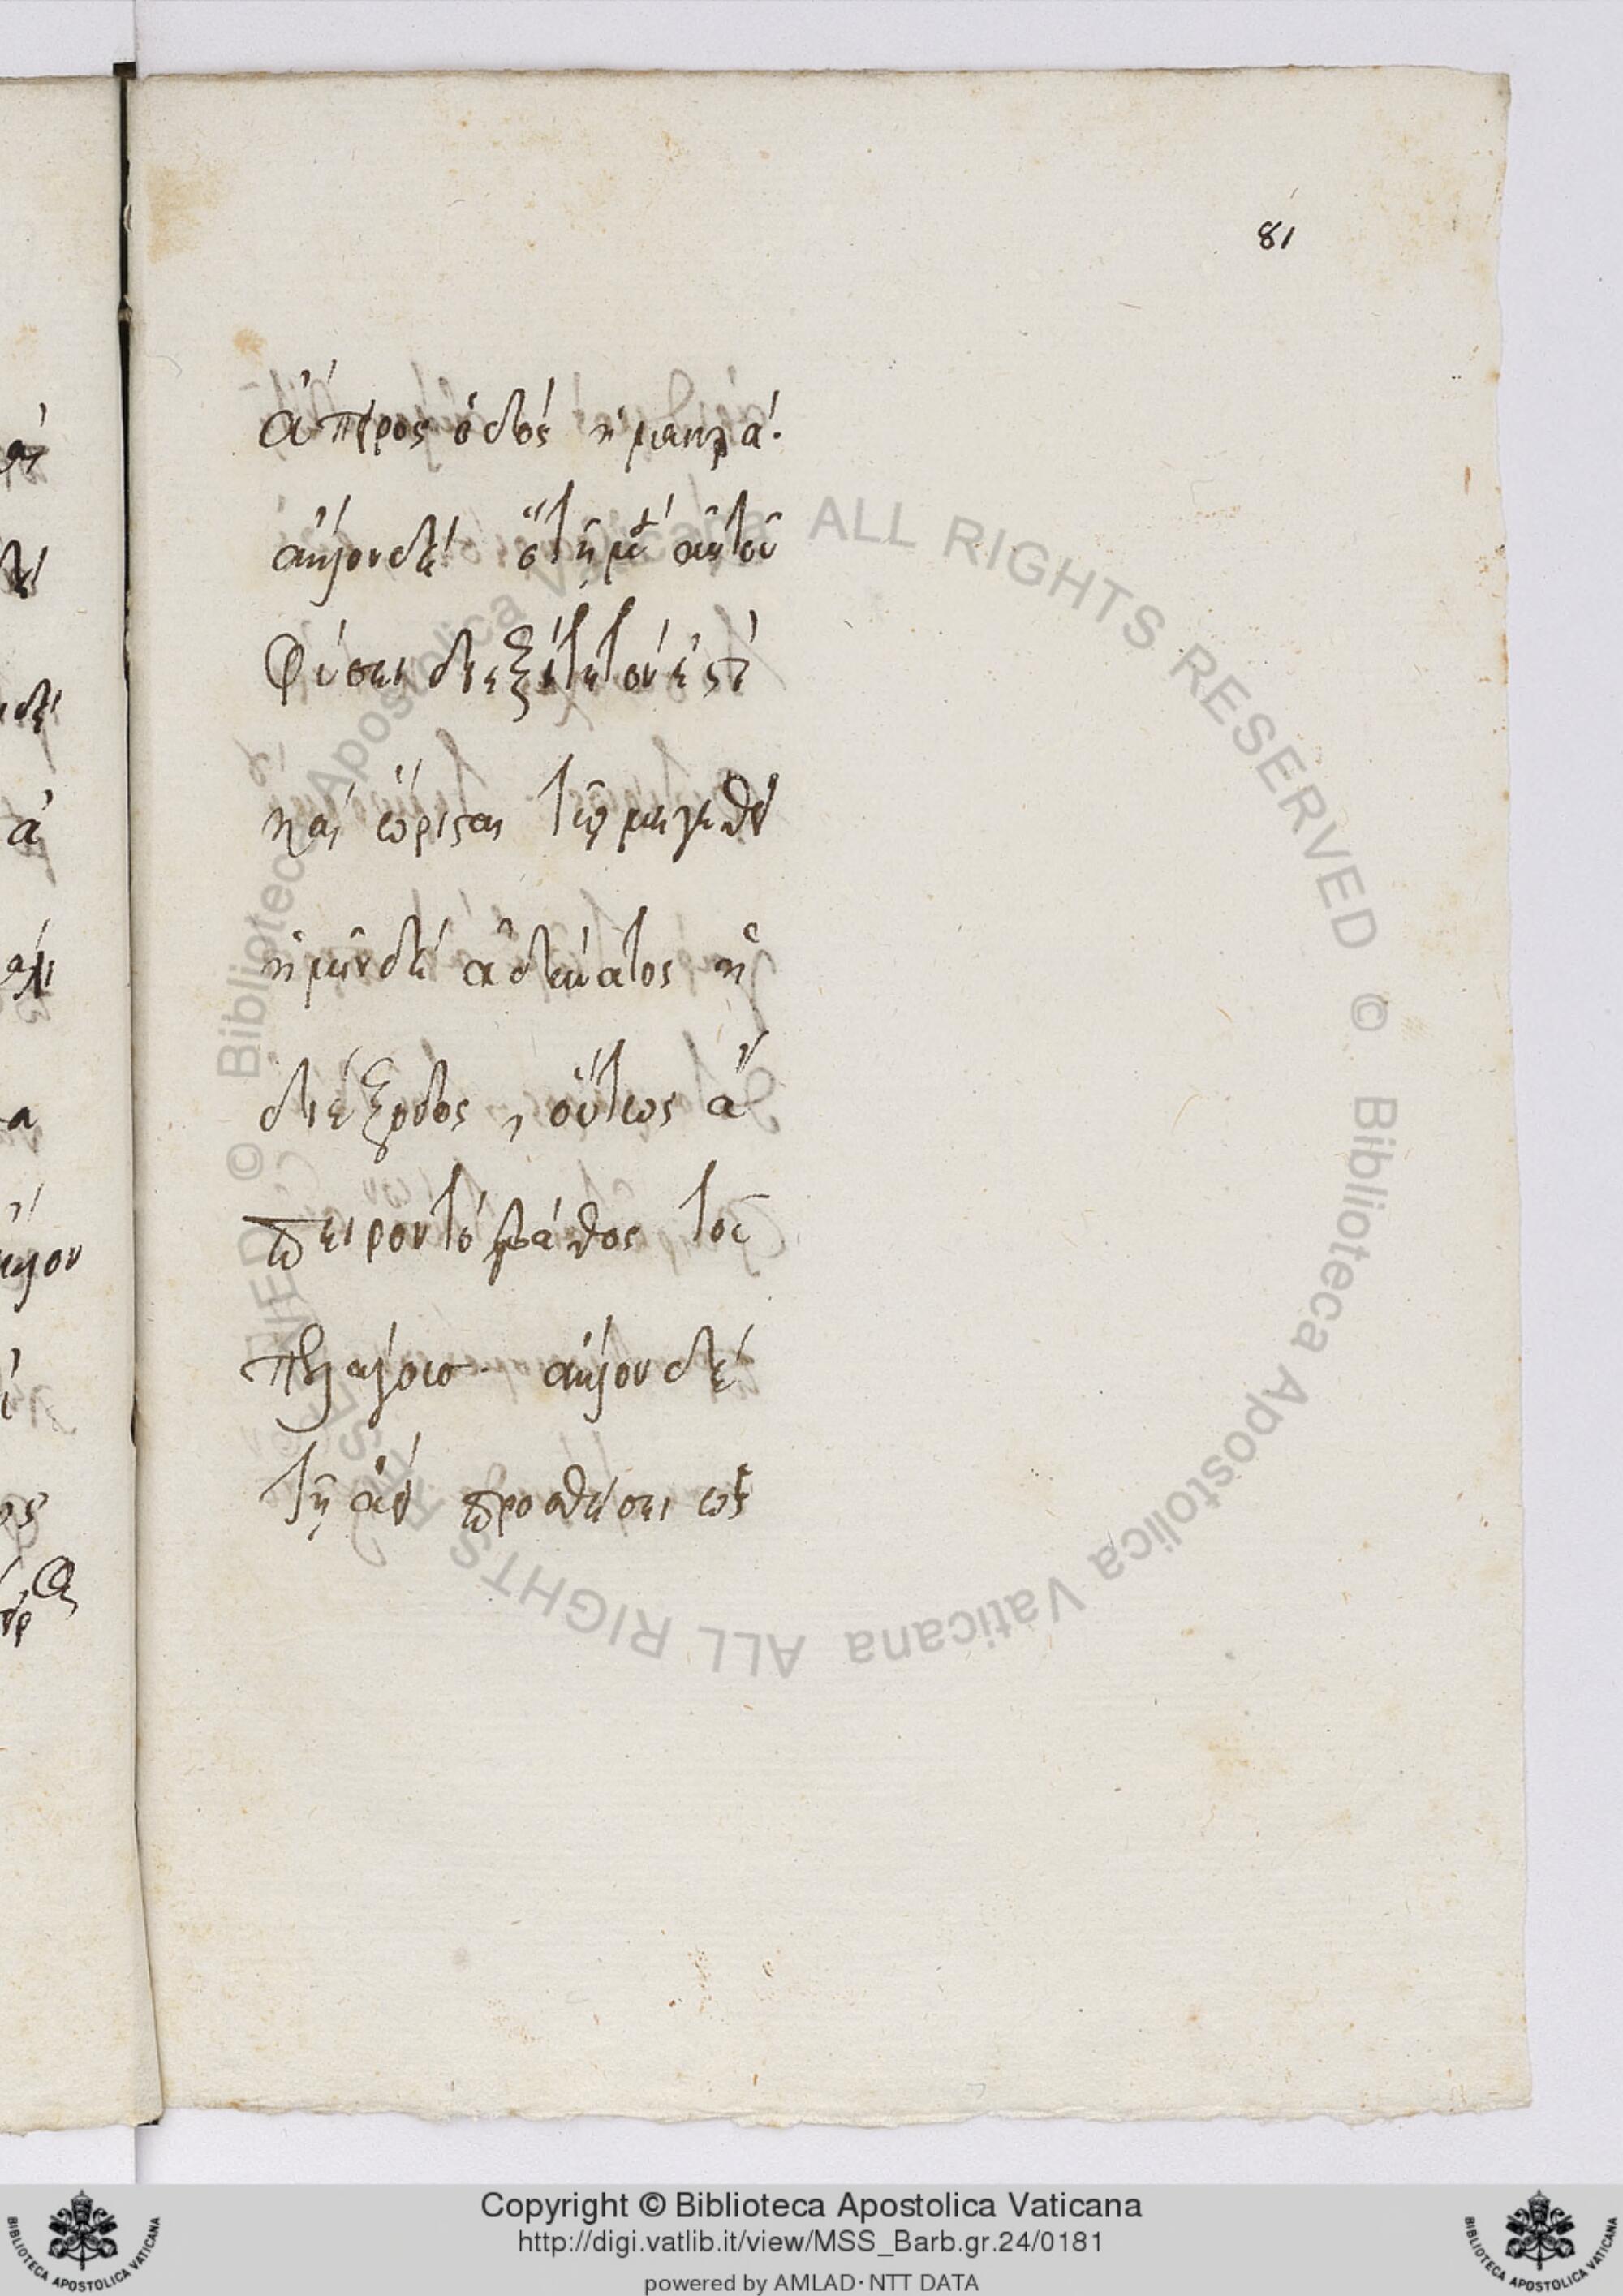 81
ἄπειρος ὁδός ἡ μακρά.
ἄπειρον δέ ὅτῃ μὲν αὐτοῦ
φύσει διεξίτητον ἐστί
καί ὥρισται τῷ μεγέθει
ἡμῖν δέ ἀδιεύατος ἡ
διέξοδος, οὕτως ἄ
πειρον τό βάθος τοῦ
πελάγους. ἄπειρον δέ
τῇ ἀεί προσθέσει ὡς
ALL RIGHTS RESERVED © Biblioteca Apostolica Vaticana ALL RIGHTS RESERVED © Biblioteca Apostolica Vaticana
Copyright © Biblioteca Apostolica Vaticana
http://digi.vatlib.it/view/MSS_Barb.gr.24/0181
powered by AMLAD·NTT DATA
BIBLIOTECA APOSTOLICA VATICANA
BIBLIOTECA APOSTOLICA VATICANA